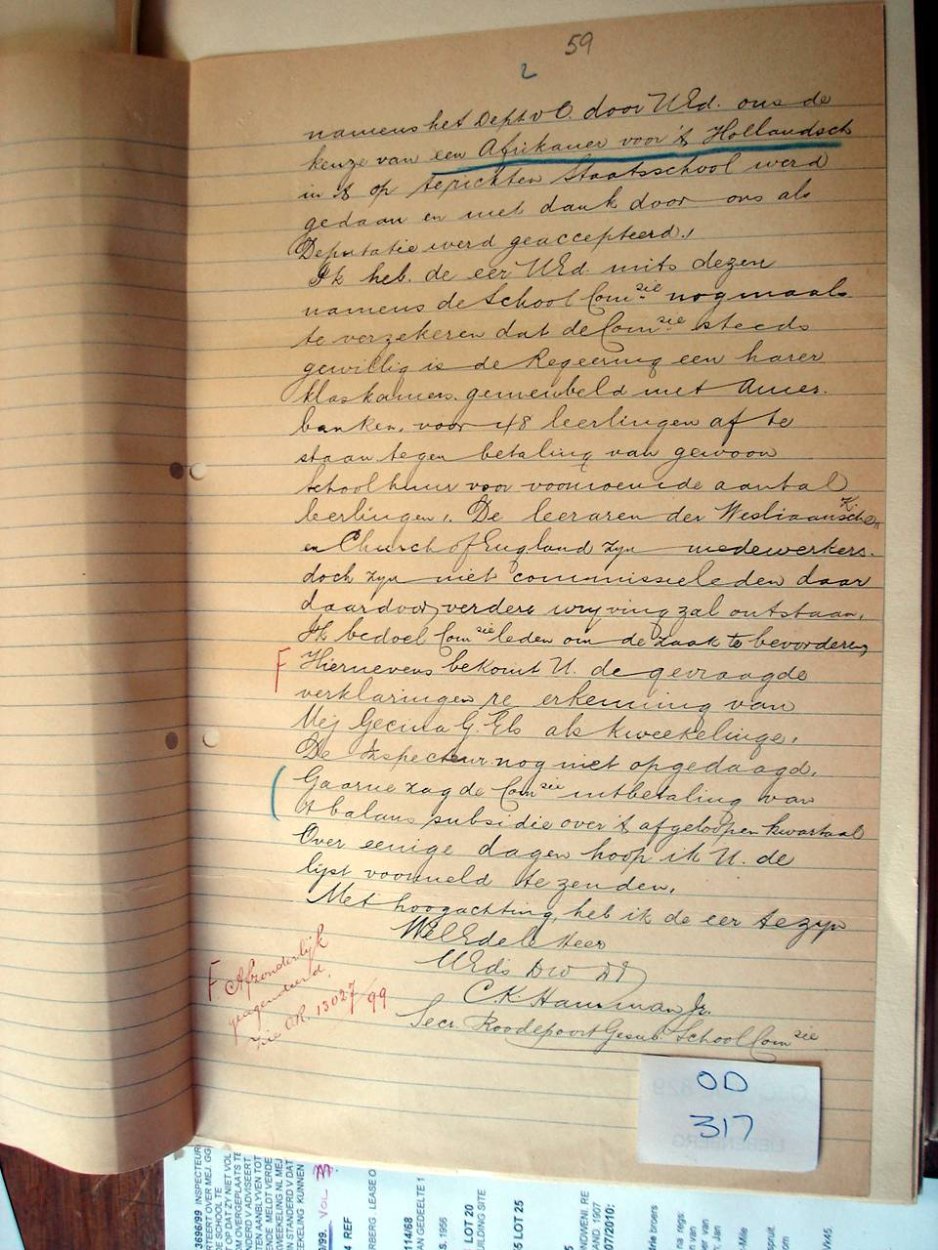 59
2
namens het Dept v O. door UEd. ons de
keuze van een Afrikaner voor 't Hollandsch
in 't op te richten Staatsschool werd
gedaan en met dank door ons als
Deputatie werd geaccepteerd.
Ik heb de eer UEd. mits dezen
namens de School Com sie nogmaals
te verzekeren dat de Com sie steeds
gewillig is de Regeering een harer
klaskamers gemeubeld met Amer.
banken, voor 48 leerlingen af te
staan tegen betaling van gewoon
schoolhuur voor voornoemde aantal
leerlingen. De leeraren der Wesliaanschen K.
en Church of England zyn medewerkers.
doch zyn niet commissieleden daar
daardoor verdere wryving zal ontstaan.
Ik bedoel Com sie leden om de zaak te bevorderen
F Hiernevens bekomt U. de gevraagde
verklaringen re erkenning van
Mej Gecina G. Els als kweekelinge.
De Inspecteur nog niet opgedaagd.
Gaarne zag de Com sie uitbetaling van
't balans subsidie over 't afgeloopen kwartaal
Over eenige dagen hoop ik U. de
lyst voormeld te zenden.
Met hoogachting heb ik de eer te zyn
WelEdele Heer
UEds Dw Dr
C. K. Hamman Jr.
Secr. Roodepoort Gesub. School Com sie
F Afzonderlijk
geagendeerd.
Zie CR. 13027/99
OD
317
3696/99 INSPECTEUR
VOL
REF
ERBERG LEASE O
114/68
AN GEDEELTE 1
S. 1956
LOT 20
UILDING SITE
LOT 25
07/2010: